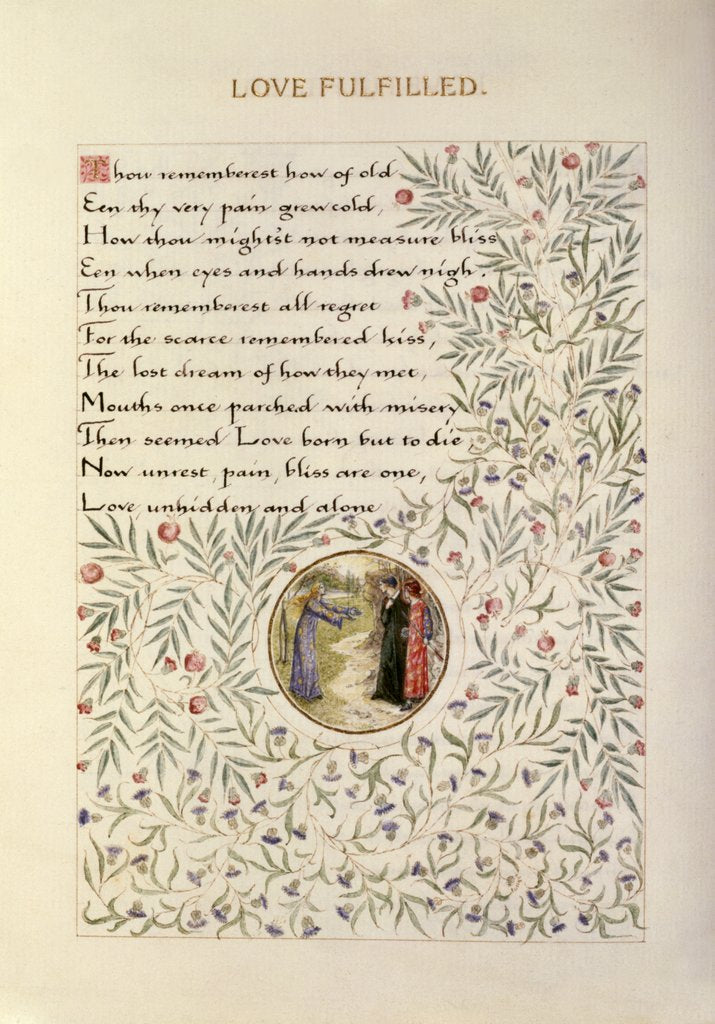 LOVE FULFILLED.
Thou rememberest how of old
Een thy very pain grew cold,
How thou might'st not measure bliss
Een when eyes and hands drew nigh.
Thou rememberest all regret
For the scarce remembered kiss,
The lost dream of how they met,
Mouths once parched with misery
Then seemed Love born but to die
Now unrest, pain, bliss are one,
Love, unhidden and alone